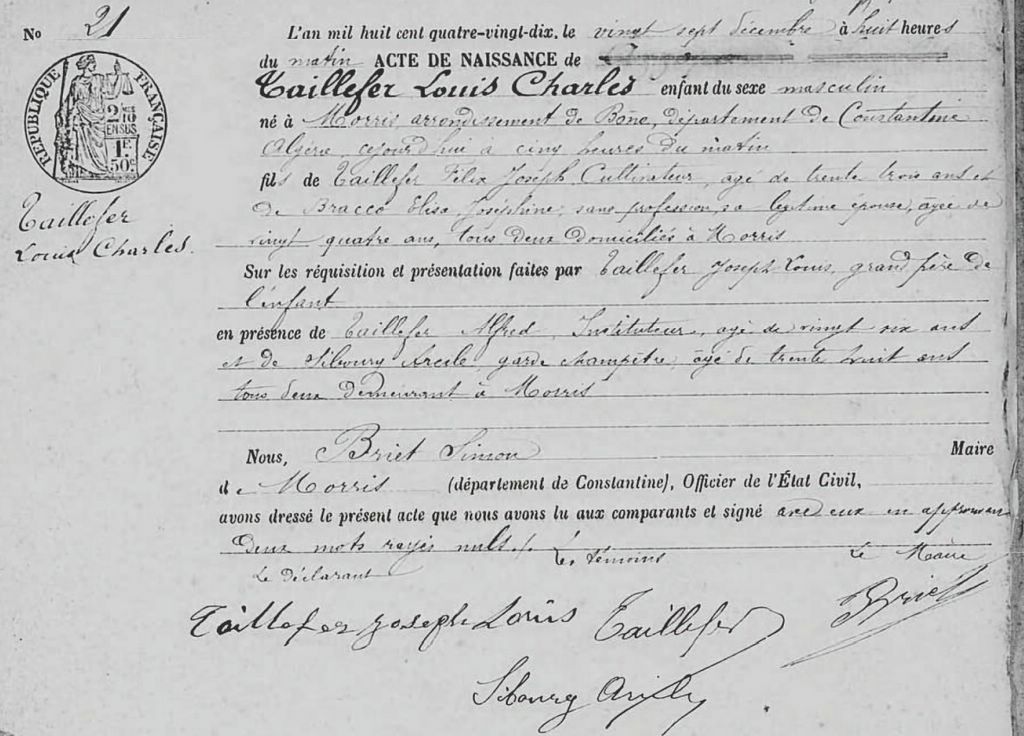 No 21
L'an mil huit cent quatre-vingt-dix, le vingt sept décembre à huit heures
du matin ACTE DE NAISSANCE de
Taillefer Louis Charles enfant du sexe masculin
né à Morris arrondissement de Bône, département de Constantine
Algérie cejourd'hui à cinq heures du matin
fils de Taillefer Félix Joseph, Cultivateur, agé de trente trois ans et
de Bracco Elisa Joséphine, sans profession, sa légitime épouse, agée de
vingt quatre ans, tous deux domiciliés à Morris
Sur les réquisition et présentation faites par Taillefer Joseph Louis, grand père de
l'enfant
en présence de Taillefer Alfred, Instituteur, agé de vingt six ans
et de Sibourg garde champêtre, agé de trente huit ans
tous deux demeurant à Morris
Nous, Briet Simon Maire
de Morris (département de Constantine), Officier de l'État Civil,
avons dressé le présent acte que nous avons lu aux comparants et signé avec eux en approuvant
deux mots rayés nuls./.
Le déclarant Les témoins Le Maire
Taillefer Joseph Louis Taillefer Briet
Sibourg
RÉPUBLIQUE FRANÇAISE
2/10
EN SUS
1F
50c
Taillefer
Louis Charles.